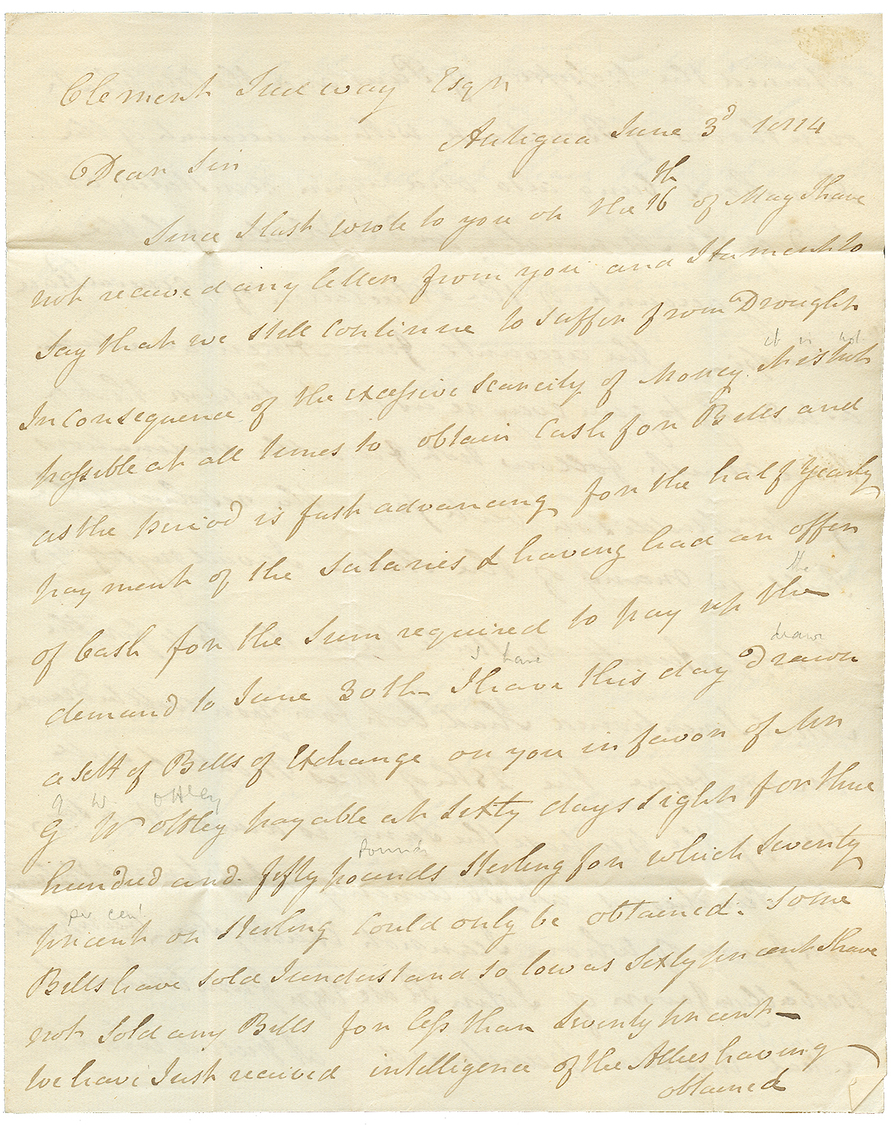 Clement Tudway Esqr
Antigua June 3d 1814
Dear Sir
Since I last wrote to you on the 16th of May I have
not received any letter from you and I lament to
Say that we still Continue to Suffer from Drought
it is not
In Consequence of the excessive Scarcity of Money it is not
possible at all times to obtain Cash for Bills and
as the period is fast advancing for the half Yearly
payment of the Salaries & having had an offer
the
of Cash for the Sum required to pay up the
I have drawn
demand to June 30th I have this day Drawn
a Sett of Bills of Exchange on you in favor of Mr
G W Ottley
G W Ottley payable at Sixty days Sight for three
Pounds
hundred and fifty pounds Sterling for which Seventy
per cent
pr cent on Sterling Could only be obtained. Some
Bills have sold I understand so low as Sixty pr cent I have
not Sold any Bills for less than Seventy pr cent
We have Just received intelligence of the Allies having
obtained